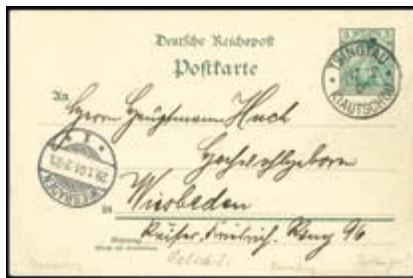 Deutsche Reichspost
Postkarte
TSINGTAU
KIAUTSCHOU
An
Herrn Hauptmann Huch
Hochwohlgeboren
in Wiesbaden
Kaiser Friedrich Ring 96
WIESBADEN